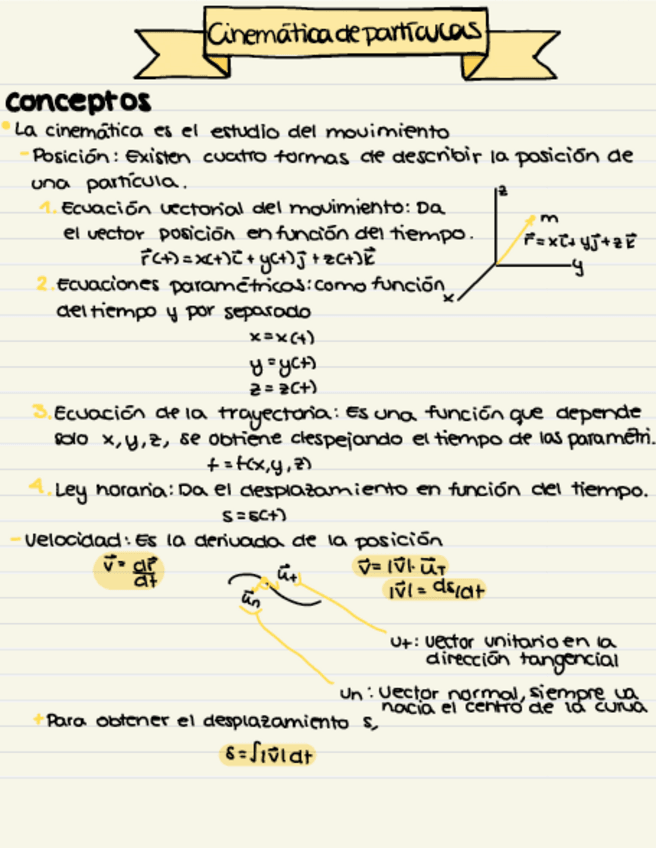 Cinemática de partículas
conceptos
La cinemática es el estudio del movimiento
- Posición: Existen cuatro formas de describir la posición de
una partícula.
1. Ecuación vectorial del movimiento: Da
el vector posición en función del tiempo.
r⃗(t) = x(t)i⃗ + y(t)j⃗ + z(t)k⃗
z
m
r⃗ = xi⃗ + yj⃗ + zk⃗
y
x
2. Ecuaciones paramétricas: como función
del tiempo y por separado
x = x(t)
y = y(t)
z = z(t)
3. Ecuación de la trayectoria: Es una función que depende
solo x, y, z, se obtiene despejando el tiempo de las paramétri.
f = f(x, y, z)
4. Ley horaria: Da el desplazamiento en función del tiempo.
s = s(t)
- Velocidad: Es la derivada de la posición
v⃗ = dr⃗/dt
u⃗t
u⃗n
v⃗ = |v⃗| · u⃗T
|v⃗| = ds/dt
ut: vector unitario en la
dirección tangencial
un: Vector normal, siempre va
hacia el centro de la curva
+ Para obtener el desplazamiento s,
s = ∫|v⃗|dt